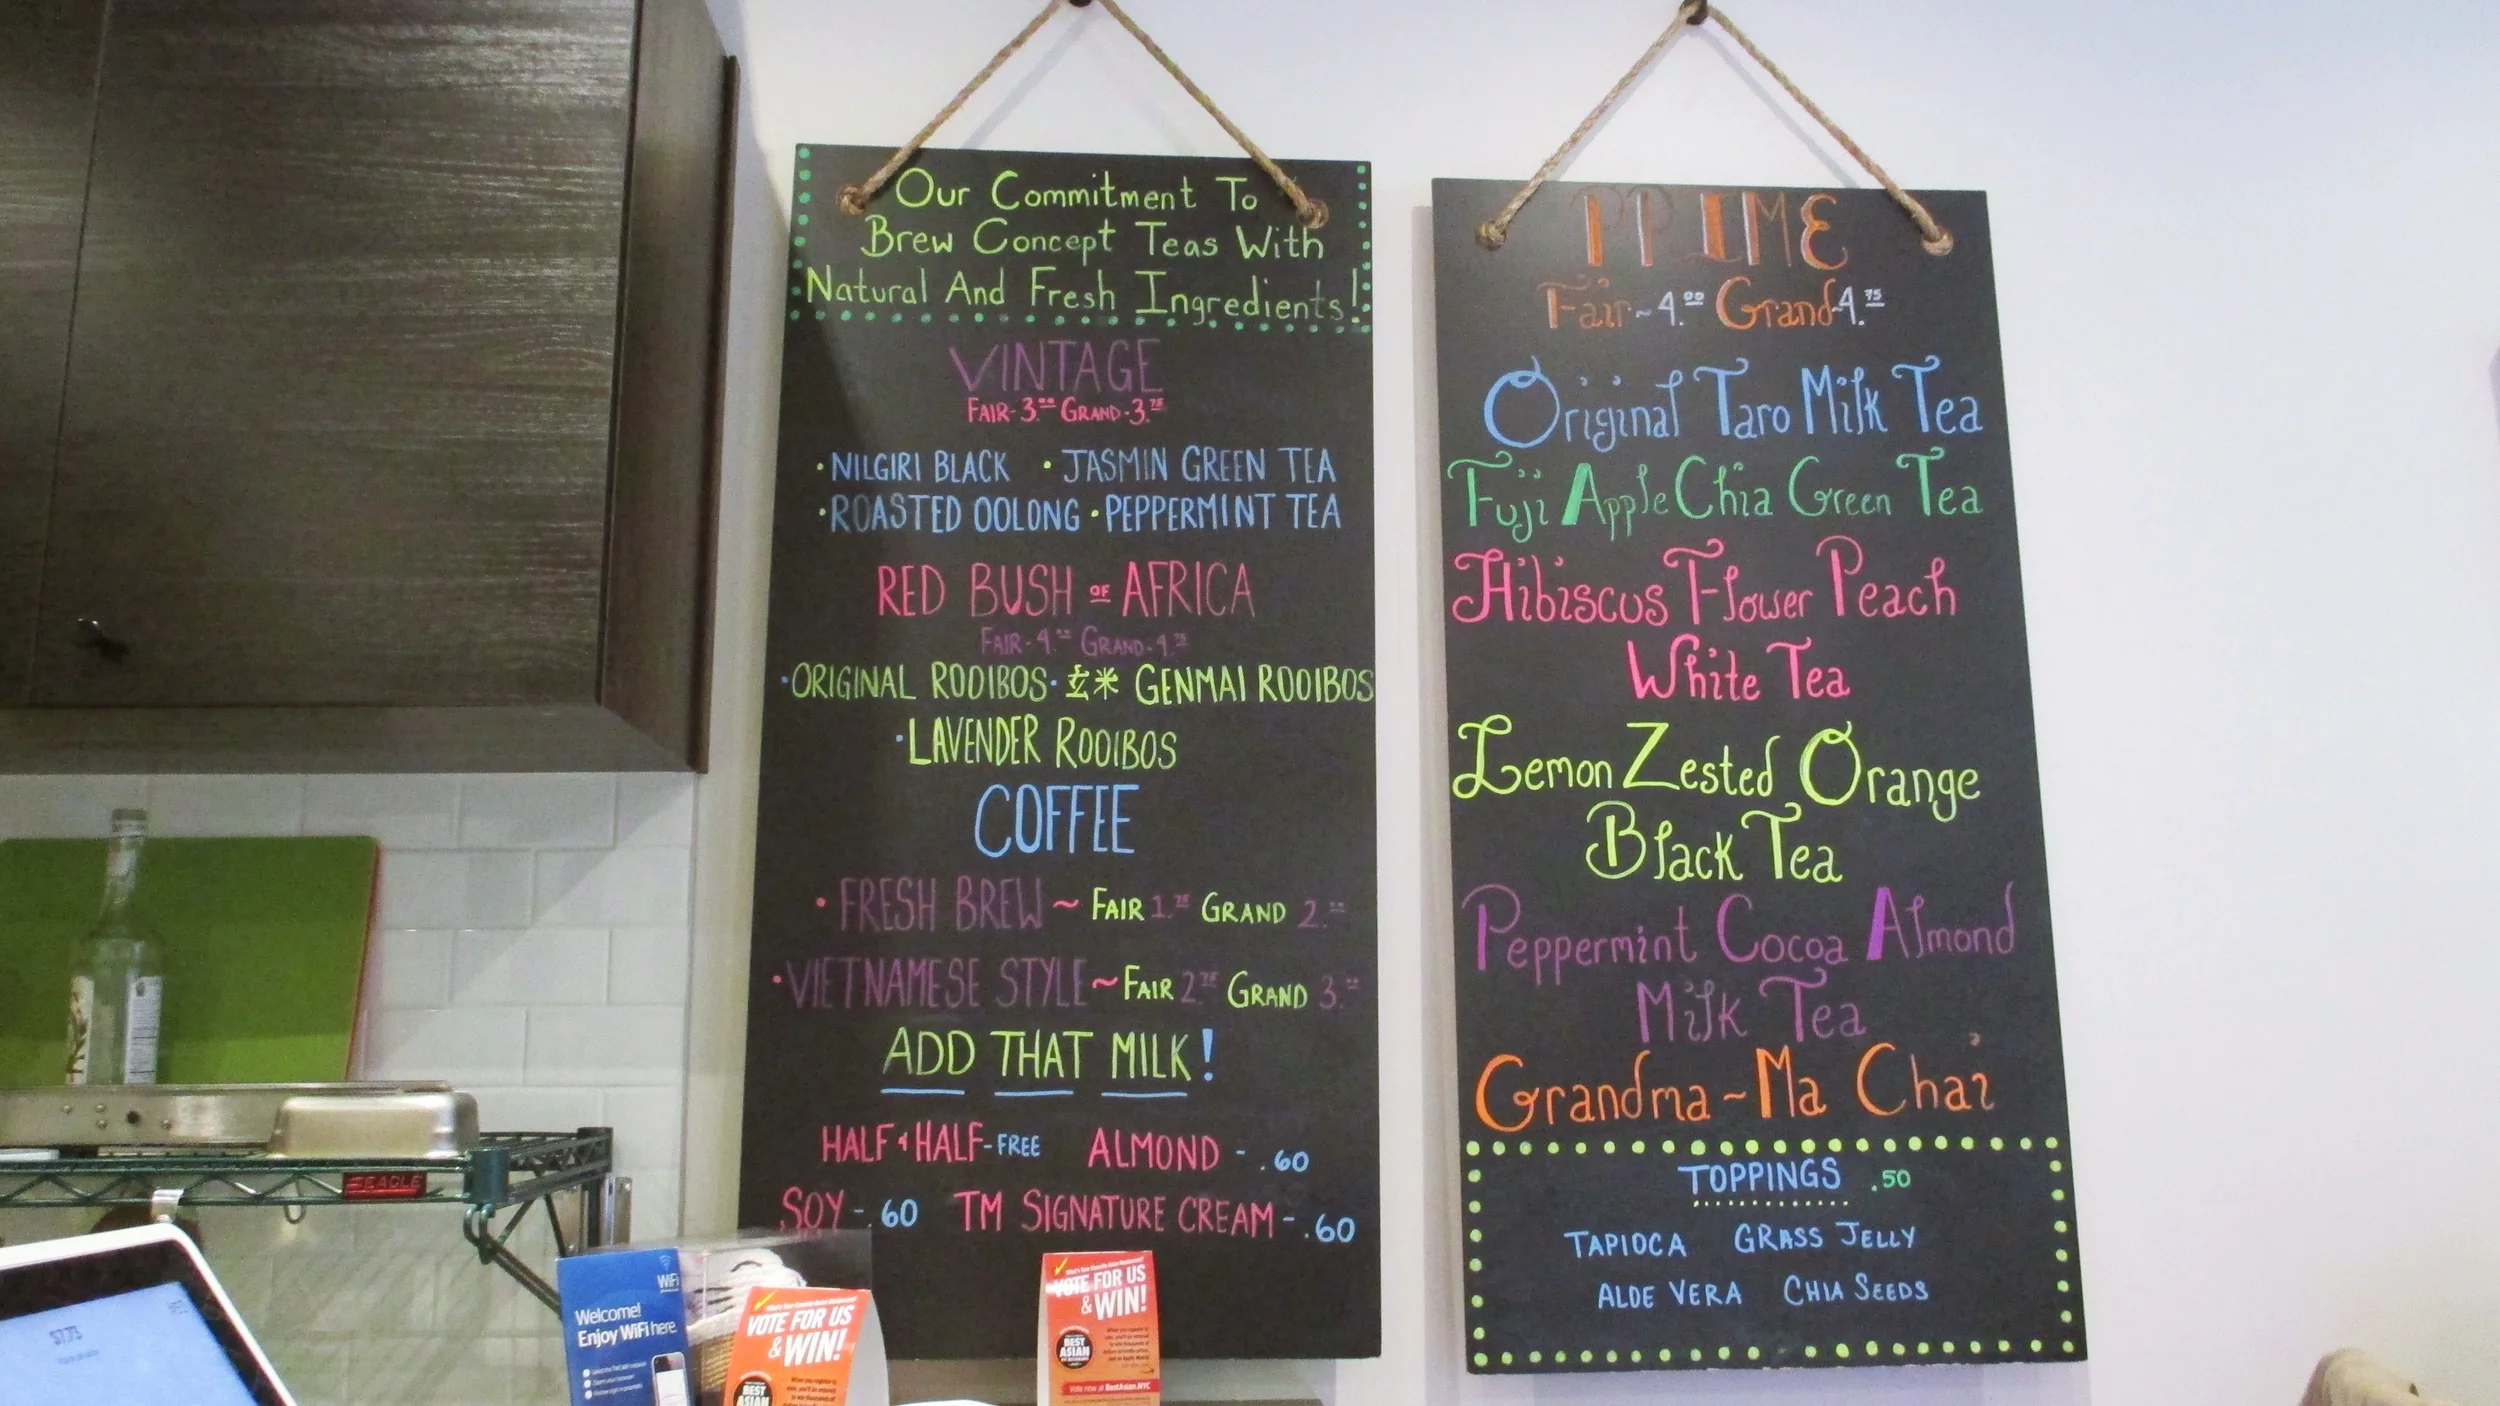 Our Commitment To
Brew Concept Teas With
Natural And Fresh Ingredients!
VINTAGE
FAIR-3.00 GRAND-3.75
·NILGIRI BLACK ·JASMIN GREEN TEA
·ROASTED OOLONG ·PEPPERMINT TEA
RED BUSH OF AFRICA
FAIR-4.00 GRAND-4.75
·ORIGINAL ROOIBOS·玄米 GENMAI ROOIBOS
·LAVENDER ROOIBOS
COFFEE
·FRESH BREW ~ FAIR 1.75 GRAND 2.00
·VIETNAMESE STYLE ~ FAIR 2.75 GRAND 3.00
ADD THAT MILK!
HALF & HALF-FREE ALMOND - .60
SOY - .60 TM SIGNATURE CREAM - .60
PRIME
Fair~4.00 Grand 4.75
Original Taro Milk Tea
Fuji Apple Chia Green Tea
Hibiscus Flower Peach
White Tea
Lemon Zested Orange
Black Tea
Peppermint Cocoa Almond
Milk Tea
Grandma~Ma Chai
TOPPINGS .50
TAPIOCA GRASS JELLY
ALOE VERA CHIA SEEDS
EAGLE
$7.73
WiFi
Welcome!
Enjoy WiFi here.
VOTE FOR US
& WIN!
BEST
ASIAN
VOTE FOR US
& WIN!
BEST
ASIAN
Vote now at BestAsian.NYC